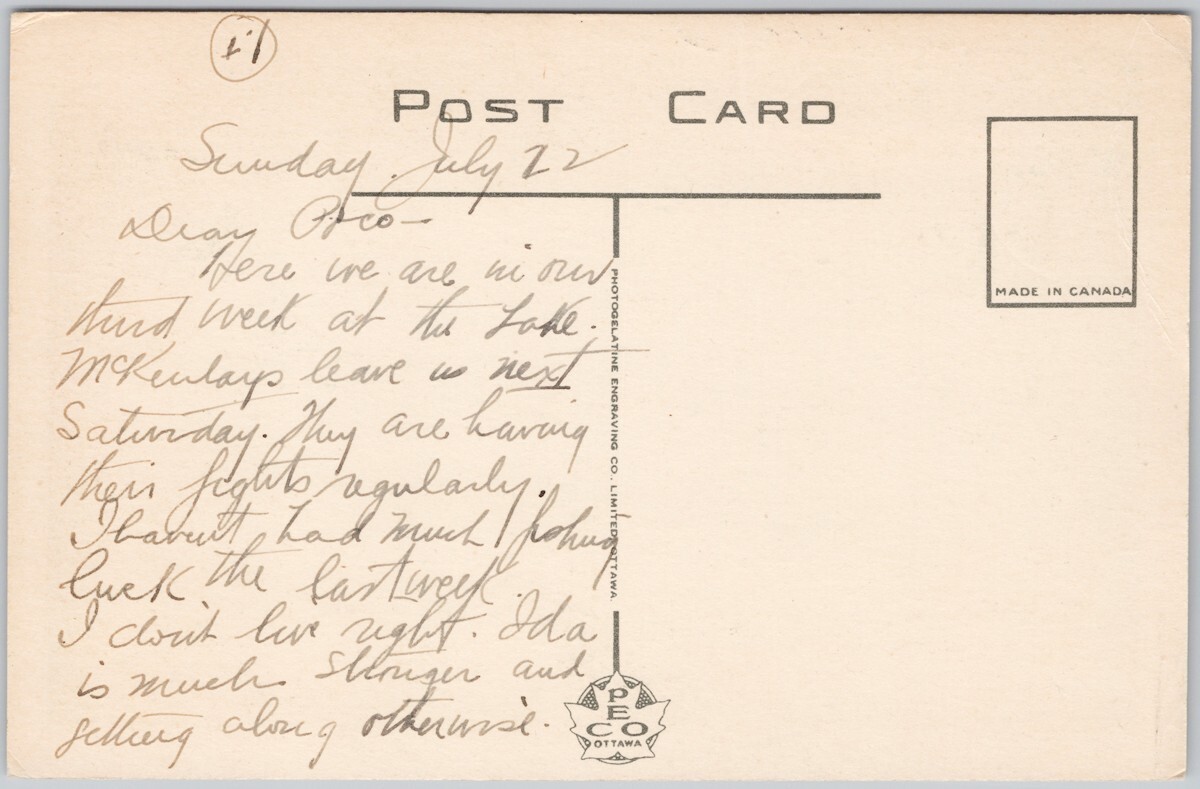 POST CARD
Sunday. July 22
Dear
Here we are in our
third week at the Lake.
McKenlays leave us next
Saturday. They are having
their fights regularly.
I haven't had much fishing
luck the last week.
I don't live right. Ida
is much stronger and
getting along otherwise.
PHOTOGELATINE ENGRAVING CO. LIMITED, OTTAWA.
MADE IN CANADA
PECO
OTTAWA